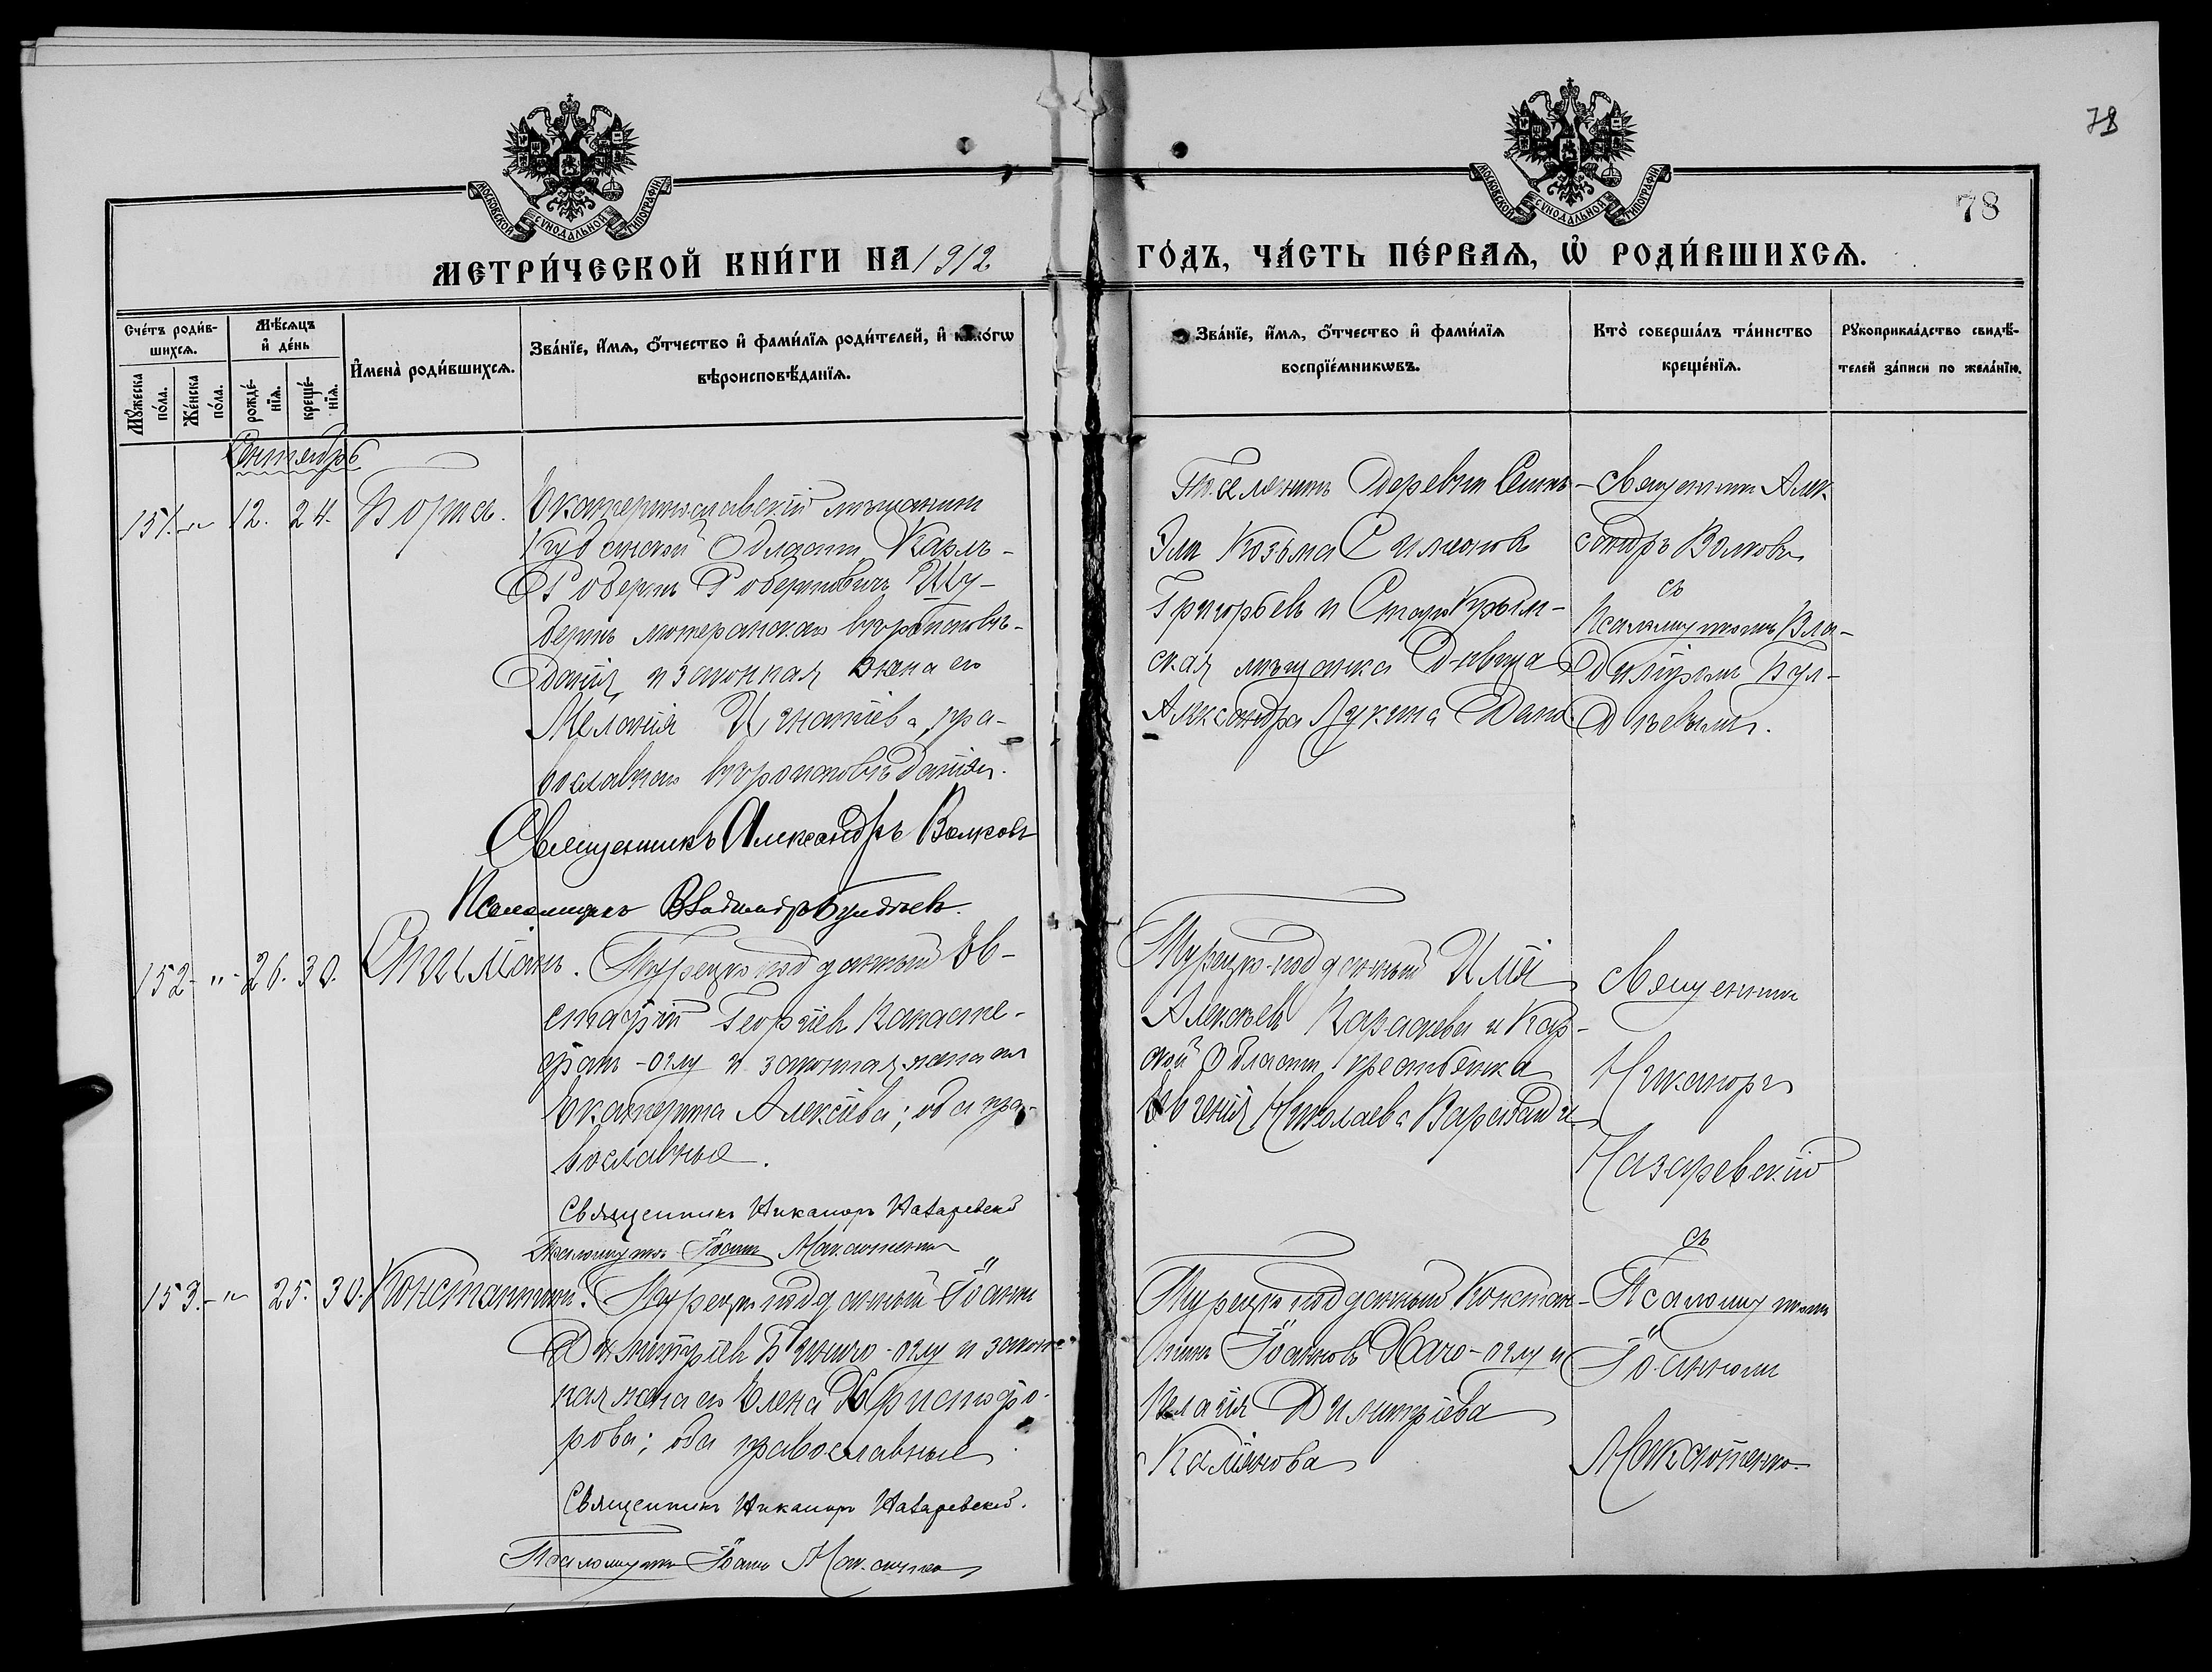 78
78
МОСКОВСКОЙ СѴНОДАЛЬНОЙ ТИПОГРАФІИ
МОСКОВСКОЙ СѴНОДАЛЬНОЙ ТИПОГРАФІИ
МЕТРИ́ЧЕСКОЙ КНИ́ГИ НА 1912
ГО́ДЪ, ЧА́СТЬ ПЕ́РВАѦ, Ѡ҆ РОДИ́ВШИХСѦ.
Сче́тъ роди́в-
шихсѧ.
Мꙋ́жеска
по́ла.
Же́нска
по́ла.
Мѣ́сѧцъ
и҆ де́нь
рожде́-
нїѧ.
креще́-
нїѧ.
И҆мена̀ роди́вшихсѧ.
Зва́нїе, и҆́мѧ, ѻ҆́тчество и҆ фами́лїѧ роди́телей, и҆ како́гѡ
вѣроисповѣ́данїѧ.
Зва́нїе, и҆́мѧ, ѻ҆́тчество и҆ фами́лїѧ
воспрїе́мникѡвъ.
Кто̀ соверша́лъ та́инство
креще́нїѧ.
Рꙋкоприкла́дство свидѣ́-
телей за́писи по жела́нїю.
Сентябрь
151. - " 12. 24. Борисъ.
Екатеринославскій мѣщанинъ
Кубанской Области Карлъ-
Робертъ Робертовичъ Шу-
бертъ лютеранскаго вѣроисповѣ-
данія и законная жена его
Меланія Игнатіева, пра-
вославнаго вѣроисповѣданія.
Священникъ Александръ Волковъ
Псаломщикъ Владиміръ Булдѣевъ.
Поселянинъ деревни
Козьма Симеоновъ
Григорьевъ и Старо-Крым-
ская мѣщанка Дѣвица
Александра Лукина
Священникъ Алек-
сандръ Волковъ
съ
Псаломщикомъ Вла-
диміромъ Бул-
дѣевымъ.
152 - " - 26. 30.
Турецко-подданный Ев-
стафій Георгіевъ
-оглу и законная жена его
Екатерина Алексіева; оба пра-
вославные.
Священникъ Никаноръ Назаревскій
Псаломщикъ Іоаннъ
Турецко-подданный Илія
Алексѣевъ и Кар-
ской Области крестьянка
Евгенія Николаева
Священникъ
Никаноръ
Назаревскій
съ
153. - " 25. 30. Константинъ.
Турецко-подданный Іоаннъ
Димитріевъ -оглу и закон-
ная жена его Елена Христофо-
рова; оба православные
Священникъ Никаноръ Назаревскій.
Псаломщикъ Іоаннъ
Турецко-подданный Констан-
тинъ Іоанновъ -оглу и
Пелагія Димитріева
Псаломщикомъ
Іоанномъ